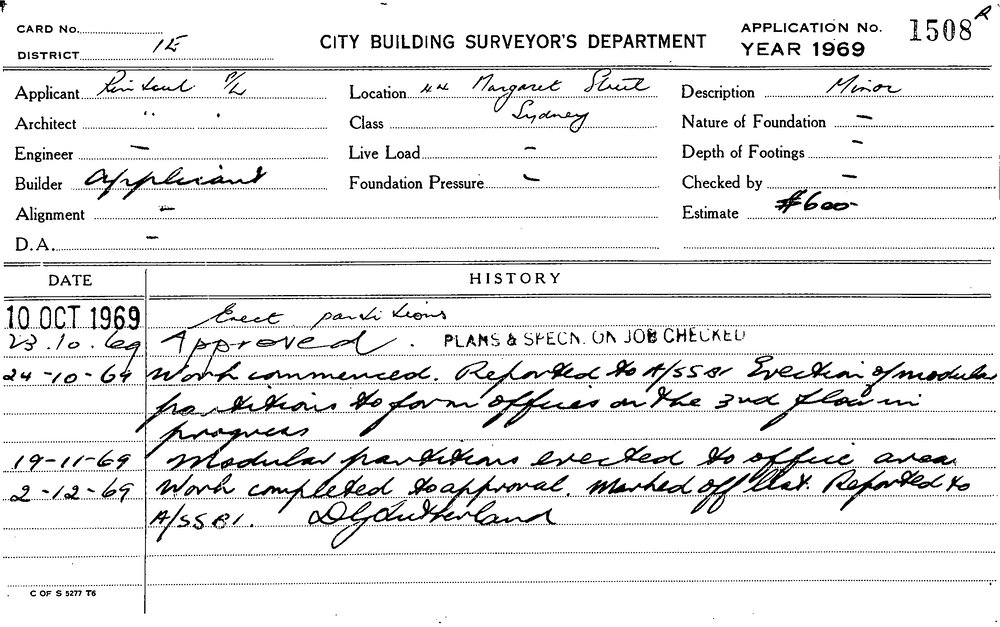 CARD No.
DISTRICT 1E
CITY BUILDING SURVEYOR'S DEPARTMENT
APPLICATION No. 1508 A
YEAR 1969
Applicant P/L
Location 44 Margaret Street
Description Minor
Architect " "
Class Sydney
Nature of Foundation –
Engineer –
Live Load –
Depth of Footings –
Builder Applicant
Foundation Pressure –
Checked by –
Alignment –
Estimate $600-
D.A. –
DATE HISTORY
10 OCT 1969 Erect partitions
23.10.69 Approved. PLANS & SPECN. ON JOB CHECKED
24-10-69 Work commenced. Reported to A/SSBI Erection of modular
partitions to form offices on the 3rd floor in
progress
19-11-69 Modular partitions erected to office area
2-12-69 Work completed to approval. Marked off list. Reported to
A/SSBI. DG Sutherland
C OF S 5277 T6